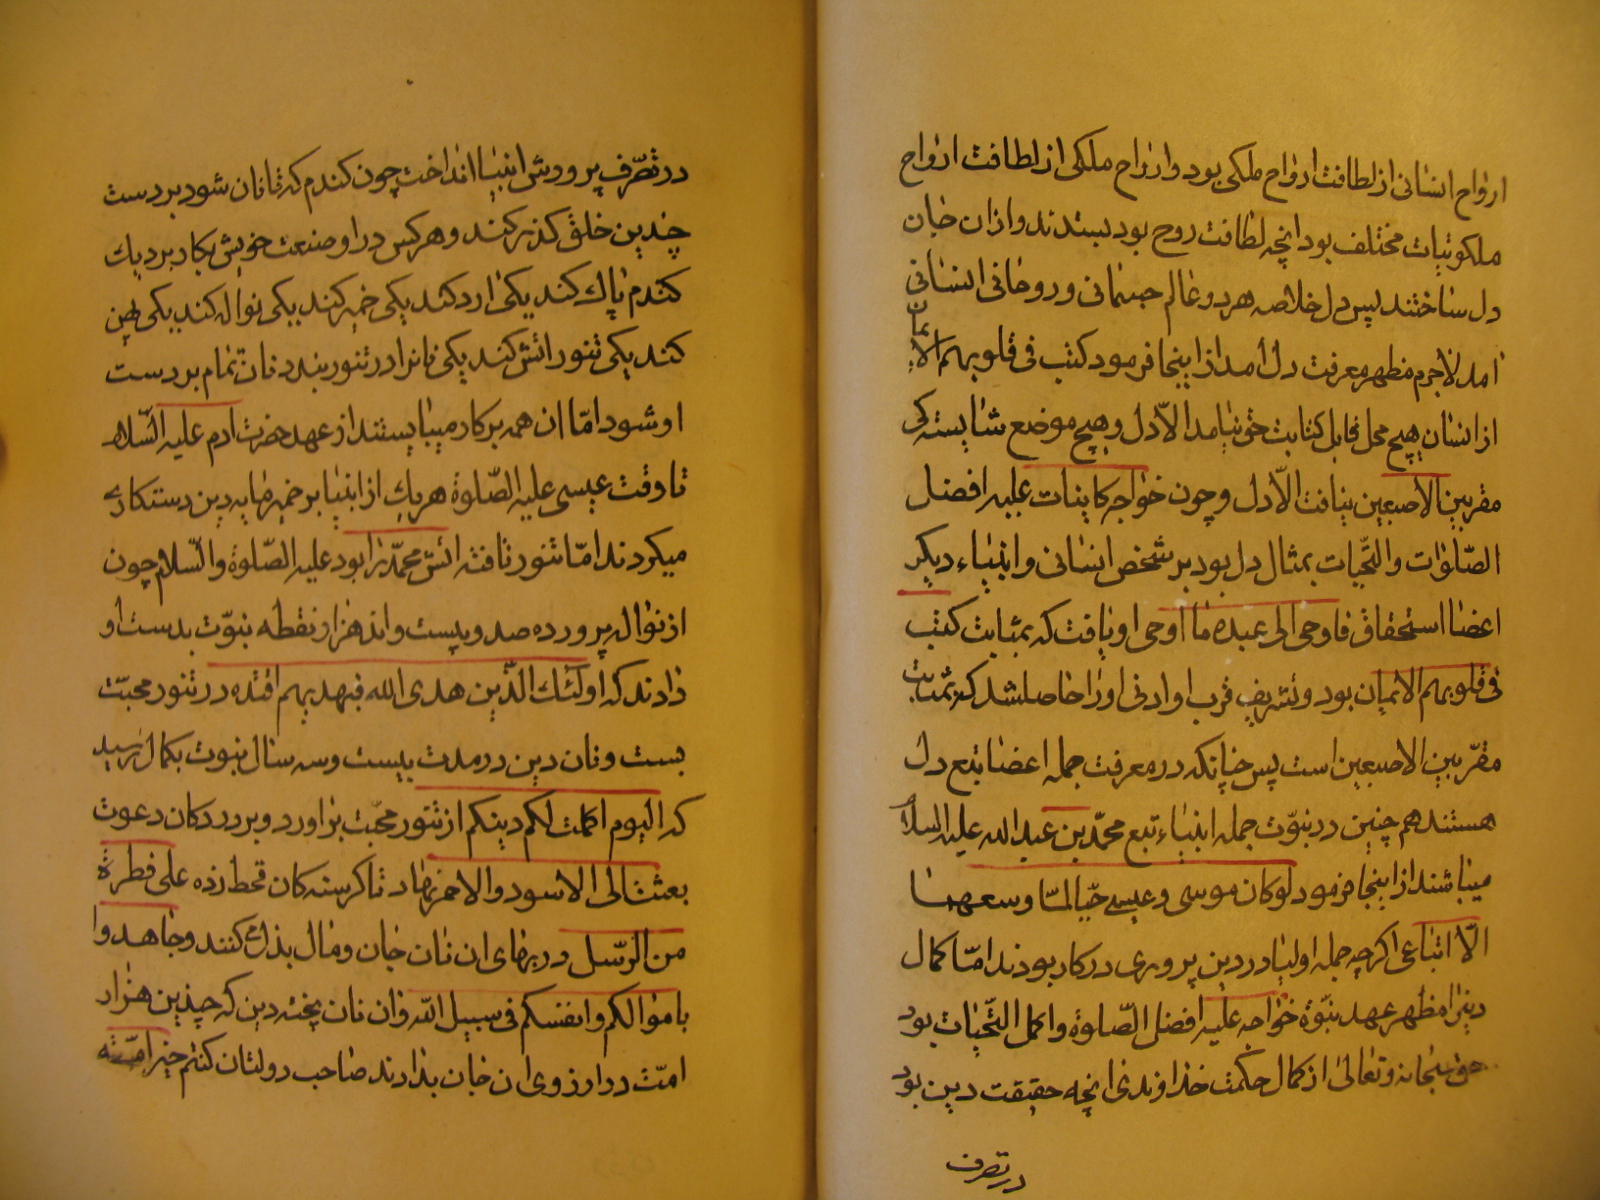 ارواح انسانی از لطافت ارواح ملکی بود و ارواح ملکی از لطافت ارواح
ملکوتیات مختلف بود انچه لطافت روح بود بستدند و ازان جان
دل ساختند پس دل خلاصه هر دو عالم جسمانی و روحانی انسانی
امد لاجرم مظهر معرفت دل امد از اینجا فرمود کتب فی قلوبهم الایمان
از انسان هیچ محل قابل کتابت حق نیامد الّا دل و هیچ موضع شایستهکی
مقر بین الاصبعین نیافت الّا دل و چون خواجه کاینات علیه افضل
الصّلوات والتّحیات بمثال دل بود بر شخص انسانی و انبیاء دیکر
اعضا استحقاق فاوحی الی عبده ما اوحی او یافت که بمثابت کتب
فی قلوبهم الایمان بود و تشریف قرب او ادنی اورا حاصلشد که بمثابت
مقرّ بین الاصبعین است پس چنانکه در معرفت جمله اعضا تبع دل
هستند هم چنین در نبوّت جمله انبیاء تبع محمّد بن عبد الله علیه السلام
میباشند از اینجا فرمود لو کان موسی و عیسی حیّا لمّا وسعهما
الّا اتباعی اکرچه جمله اولیا در دین پروری در کار بودند امّا کمال
دینرا مظهر عهد نبّوة خواجه علیه افضل الصّلوة و اکمل التّحیات بود
حق سبحانه و تعالی از کمال حکمت خداوندی انچه حقیقت دین بود
در تصرف
در تصّرف پرورش انبیا انداخت چون کندم که تا نان شود بر دست
چندین خلق کذر کند و هر کس درا و صنعت خویش بکار برد یك
کندم پاك کند یکی ارد کند یکی خمیر کند یکی نواله کند یکی پهن
کند یکی تنور اتش کند یکی نانرا در تنور بندد نان تمام بر دست
او شود امّا ان همه بر کار میبایستند از عهد حضرت ادم علیه السّلام
تا وقت عیسی علیه الصّلوة هر یك از انبیا بر خمیر مایه دین دستکاری
میکردند امّا تنور تافته اتش محمّد را بود علیه الصّلوة والسّلام چون
از نواله پرورده صد و بیست و اند هزار نقطه نبوّت بدست او
دادند که اولئك الّذین هدی الله فبهدیهم اقتده در تنور محبّت
بست و نان دین در مدت بیست و سه سال نبوت بکمال رسید
که الیوم اکملت لکم دینکم از تنور محّبت براورد و بر در دکان دعوت
بعثت الی الاسود و الاحمر نهاد تا کرسنه کان قحط زده علی فطرة
من الرّسل در بهای ان نان جان و مال بذل می کنند و جاهدوا
باموالکم و انفسکم فی سبیل الله و ان نان پخته دین که چندین هزار
امّت در ارزوی ان جان بدادند صاحب دولتان کنتم خیر امّة